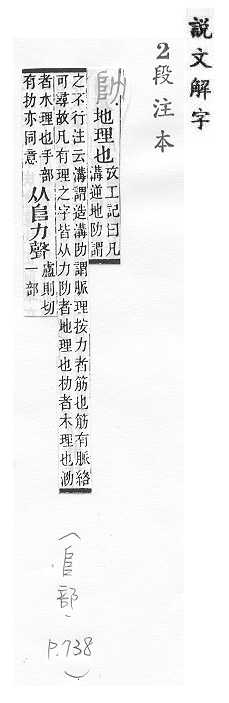 說文解字
2段注本
阞
地理也
攷工記曰凡
溝逆地阞謂
之不行注云溝謂造溝阞謂脈理按力者筋也筋有脈絡
可尋故凡有理之字皆从力阞者地理也朸者木理也泐
者水理也手部
有扐亦同意
从𨸏力聲
盧則切
一部
(𨸏部 P.738)